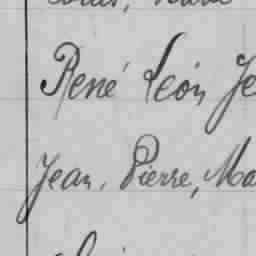 René Léon Je
Jean, Pierre, Ma